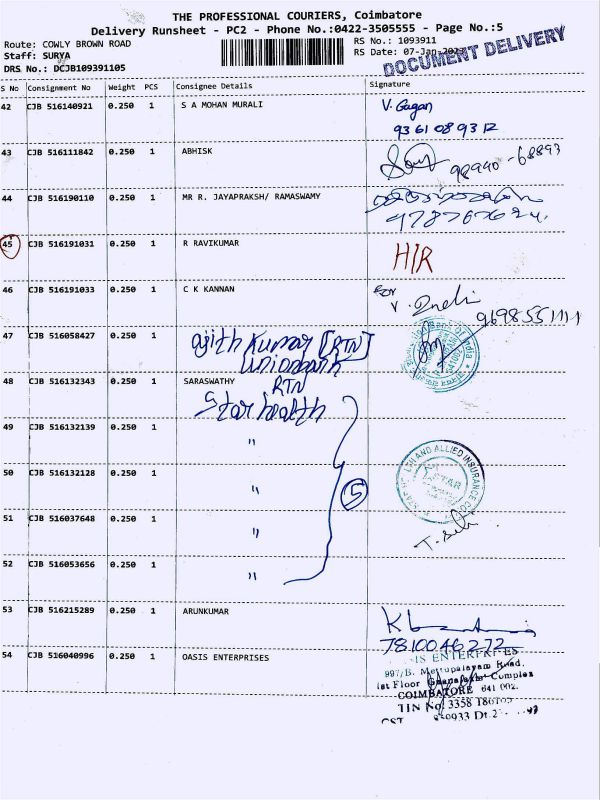 THE PROFESSIONAL COURIERS, Coimbatore
Delivery Runsheet - PC2 - Phone No.:0422-3505555 - Page No.:5
Route: COWLY BROWN ROAD
RS No.: 1093911
Staff: SURYA
RS Date: 07-Jan-2023
DRS No.: DCJB109391105
DOCUMENT DELIVERY
S No Consignment No Weight PCS Consignee Details Signature
42 CJB 516140921 0.250 1 S A MOHAN MURALI V. Gagan
93 61 08 93 12
43 CJB 516111842 0.250 1 ABHISK 98940-68893
44 CJB 516190110 0.250 1 MR R. JAYAPRAKSH/ RAMASWAMY
45 CJB 516191031 0.250 1 R RAVIKUMAR H/R
46 CJB 516191033 0.250 1 C K KANNAN
9698551111
47 CJB 516058427 0.250 1 ajith Kumar [RTN]
48 CJB 516132343 0.250 1 SARASWATHY RTN
Star health
49 CJB 516132139 0.250 1 "
50 CJB 516132128 0.250 1 "
5
STAR
51 CJB 516037648 0.250 1 "
52 CJB 516053656 0.250 1 "
53 CJB 516215289 0.250 1 ARUNKUMAR
7810046272
54 CJB 516040996 0.250 1 OASIS ENTERPRISES
997/B. Mettupalayam Road,
1st Floor Complex
COIMBATORE 641 002.
TIN No: 3358
CST